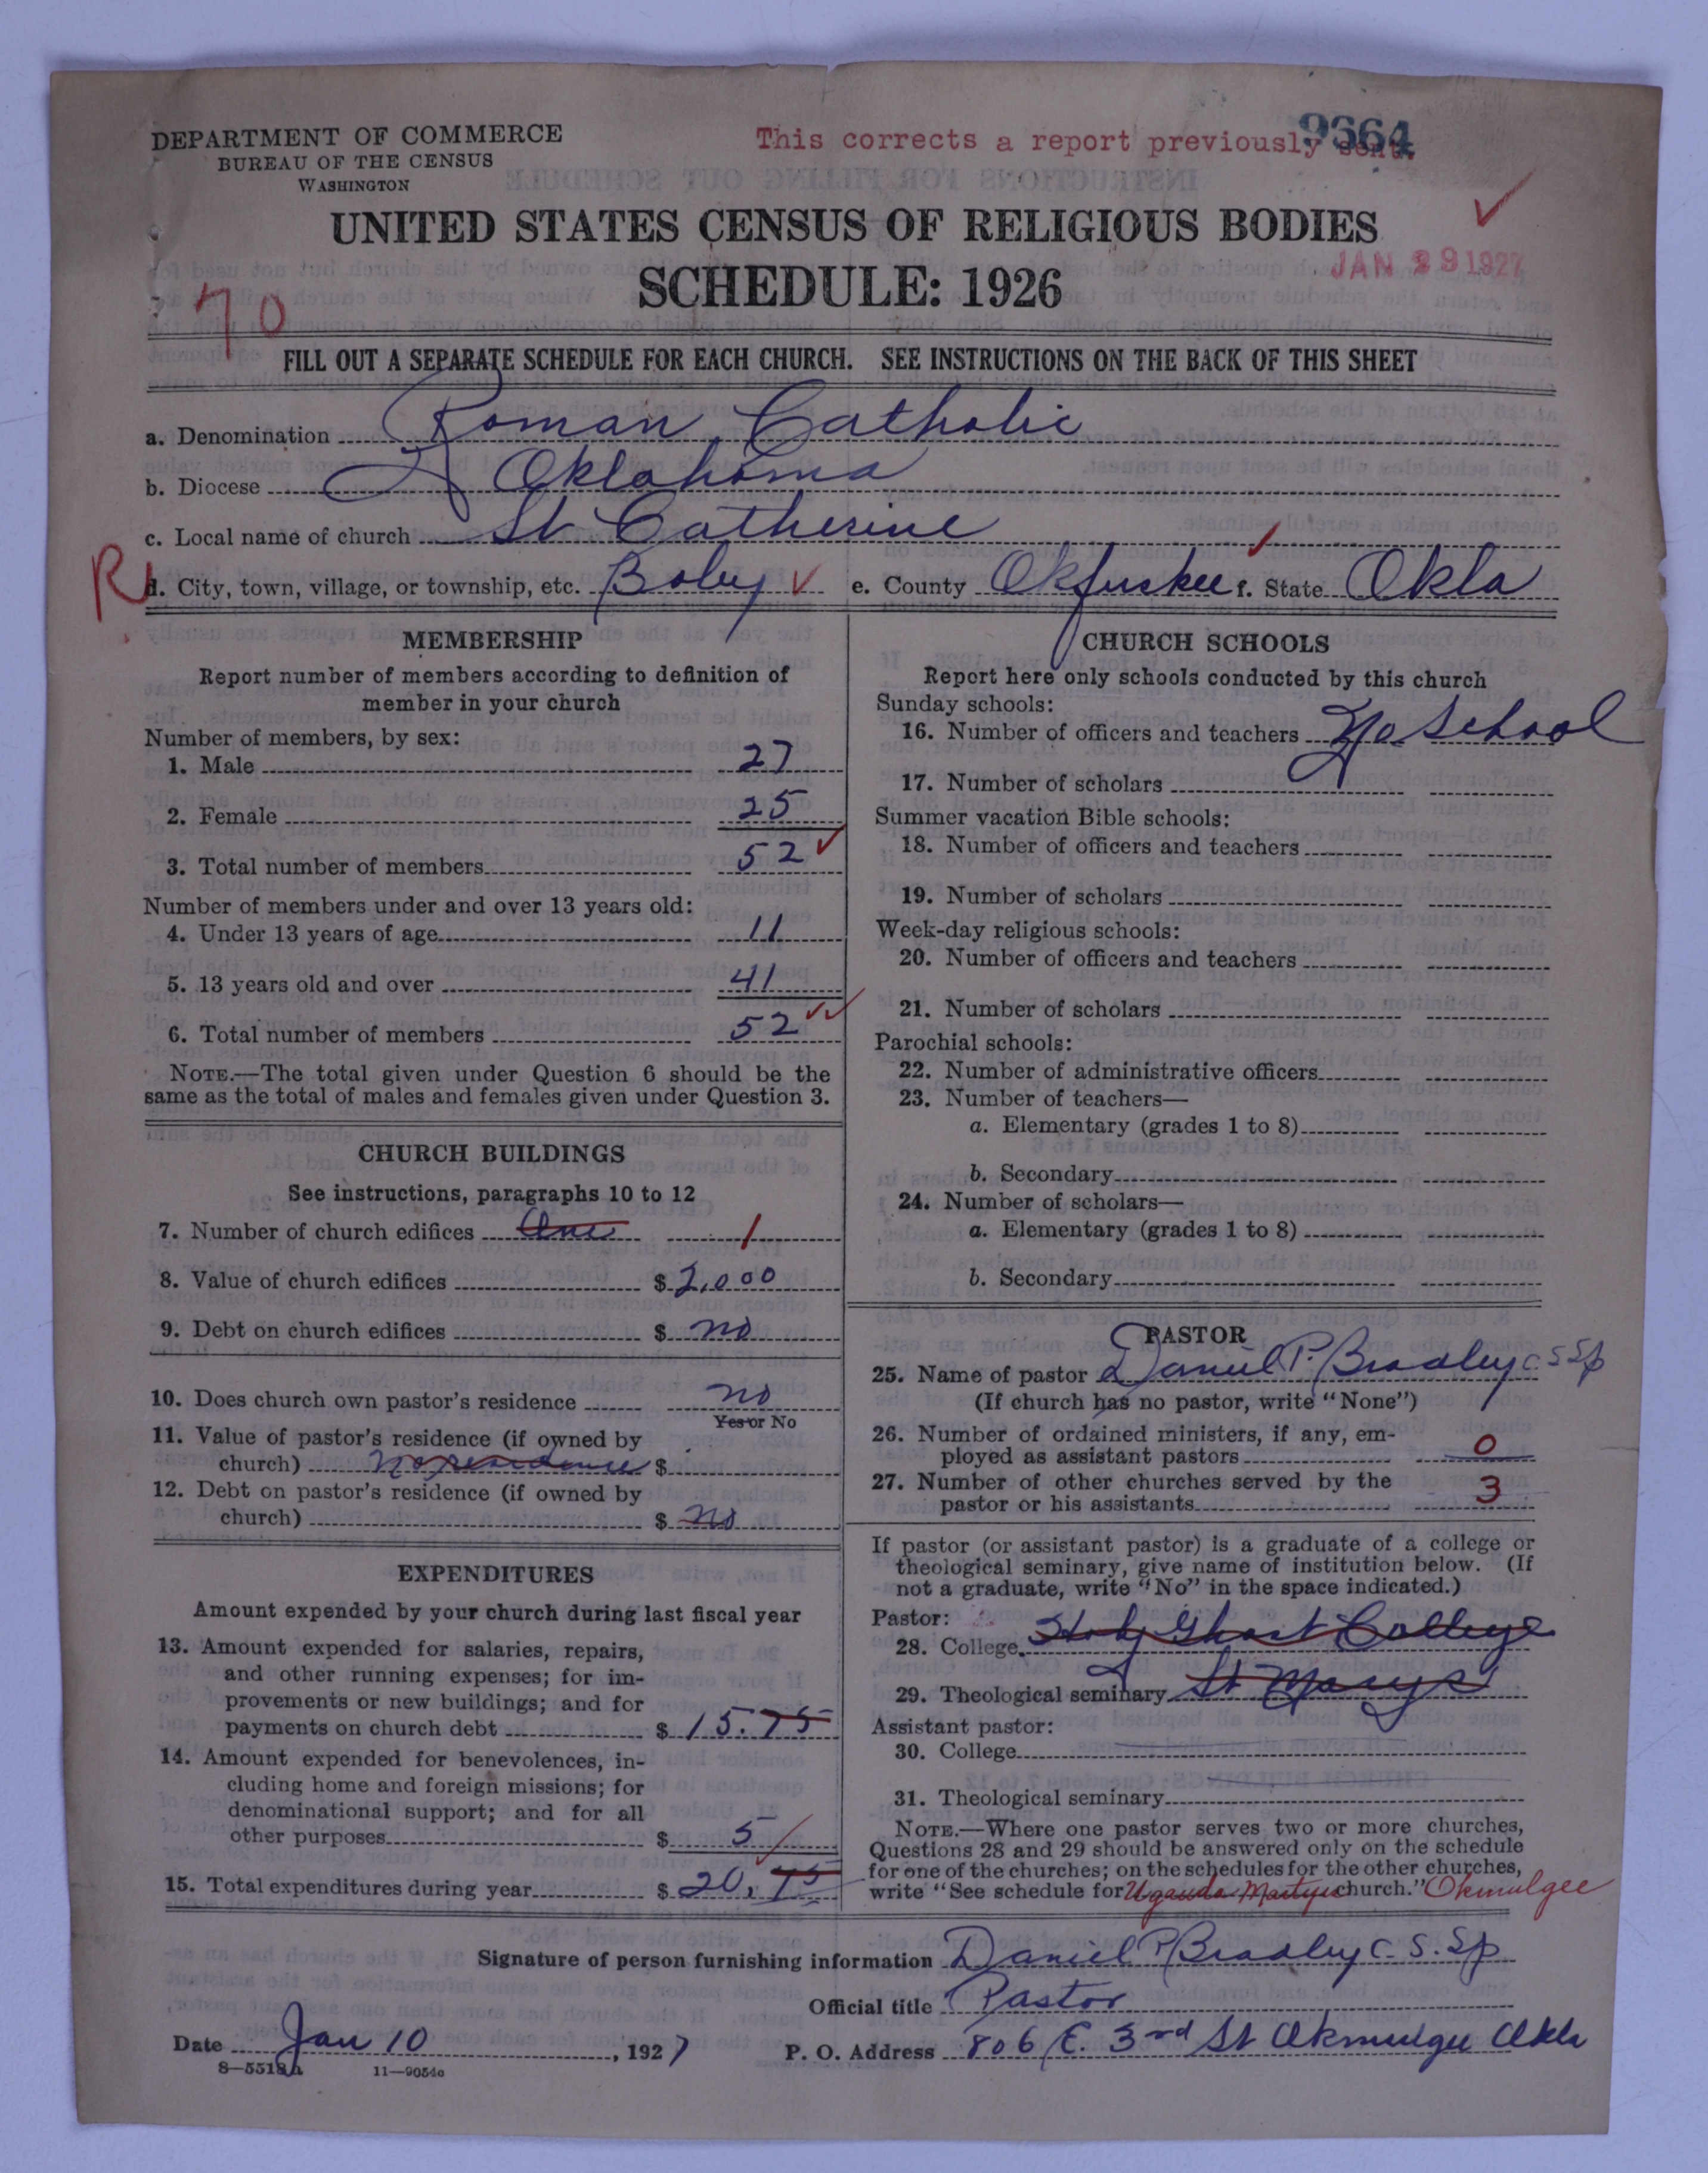 DEPARTMENT OF COMMERCE
BUREAU OF THE CENSUS
WASHINGTON
This corrects a report previously sent.
9664
UNITED STATES CENSUS OF RELIGIOUS BODIES
JAN 29 1927
SCHEDULE: 1926
70
FILL OUT A SEPARATE SCHEDULE FOR EACH CHURCH. SEE INSTRUCTIONS ON THE BACK OF THIS SHEET
a. Denomination Roman Catholic
b. Diocese Oklahoma
c. Local name of church St Catherine
R
d. City, town, village, or township, etc. Boley e. County Okfuskee f. State Okla
MEMBERSHIP
Report number of members according to definition of
member in your church
Number of members, by sex:
1. Male 27
2. Female 25
3. Total number of members 52
Number of members under and over 13 years old:
4. Under 13 years of age 11
5. 13 years old and over 41
6. Total number of members 52
NOTE.—The total given under Question 6 should be the
same as the total of males and females given under Question 3.
CHURCH BUILDINGS
See instructions, paragraphs 10 to 12
7. Number of church edifices One 1
8. Value of church edifices $ 2,000
9. Debt on church edifices $ no
10. Does church own pastor's residence no
Yes or No
11. Value of pastor's residence (if owned by
church) no residence $
12. Debt on pastor's residence (if owned by
church) $ no
EXPENDITURES
Amount expended by your church during last fiscal year
13. Amount expended for salaries, repairs,
and other running expenses; for im-
provements or new buildings; and for
payments on church debt $ 15.75
14. Amount expended for benevolences, in-
cluding home and foreign missions; for
denominational support; and for all
other purposes $ 5
15. Total expenditures during year $ 20.75
CHURCH SCHOOLS
Report here only schools conducted by this church
Sunday schools:
16. Number of officers and teachers No School
17. Number of scholars
Summer vacation Bible schools:
18. Number of officers and teachers
19. Number of scholars
Week-day religious schools:
20. Number of officers and teachers
21. Number of scholars
Parochial schools:
22. Number of administrative officers
23. Number of teachers—
a. Elementary (grades 1 to 8)
b. Secondary
24. Number of scholars—
a. Elementary (grades 1 to 8)
b. Secondary
PASTOR
25. Name of pastor Daniel P. Bradley C.S.Sp
(If church has no pastor, write "None")
26. Number of ordained ministers, if any, em-
ployed as assistant pastors 0
27. Number of other churches served by the
pastor or his assistants 3
If pastor (or assistant pastor) is a graduate of a college or
theological seminary, give name of institution below. (If
not a graduate, write "No" in the space indicated.)
Pastor:
28. College Holy Ghost College
29. Theological seminary St Marys
Assistant pastor:
30. College
31. Theological seminary
NOTE.—Where one pastor serves two or more churches,
Questions 28 and 29 should be answered only on the schedule
for one of the churches; on the schedules for the other churches,
write "See schedule for Uganda Martyrs church." Okmulgee
Signature of person furnishing information Daniel P Bradley C.S.Sp
Official title Pastor
Date Jan 10, 1927 P. O. Address 806 E. 3rd St Okmulgee Okla
8—5518a 11—9054a